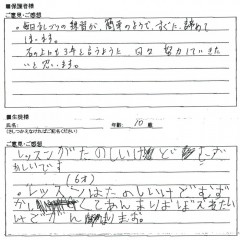 ■保護者様
ご意見・ご感想
・毎日少しづつの練習が、簡単のようで、すぐに諦めて
しまいます。
石の上にも3年と言うように 日々 努力していきたい
と思います。
■生徒様
氏名: 年齢: 10 歳
(さしつかえなければご記名ください)
ご意見・ご感想
レッスンがたのしいけど むず
かしいです
(6才)
・レッスンはたのしいけどす。ず
かしくてあんまりおぼえきたい
けどがんばります。